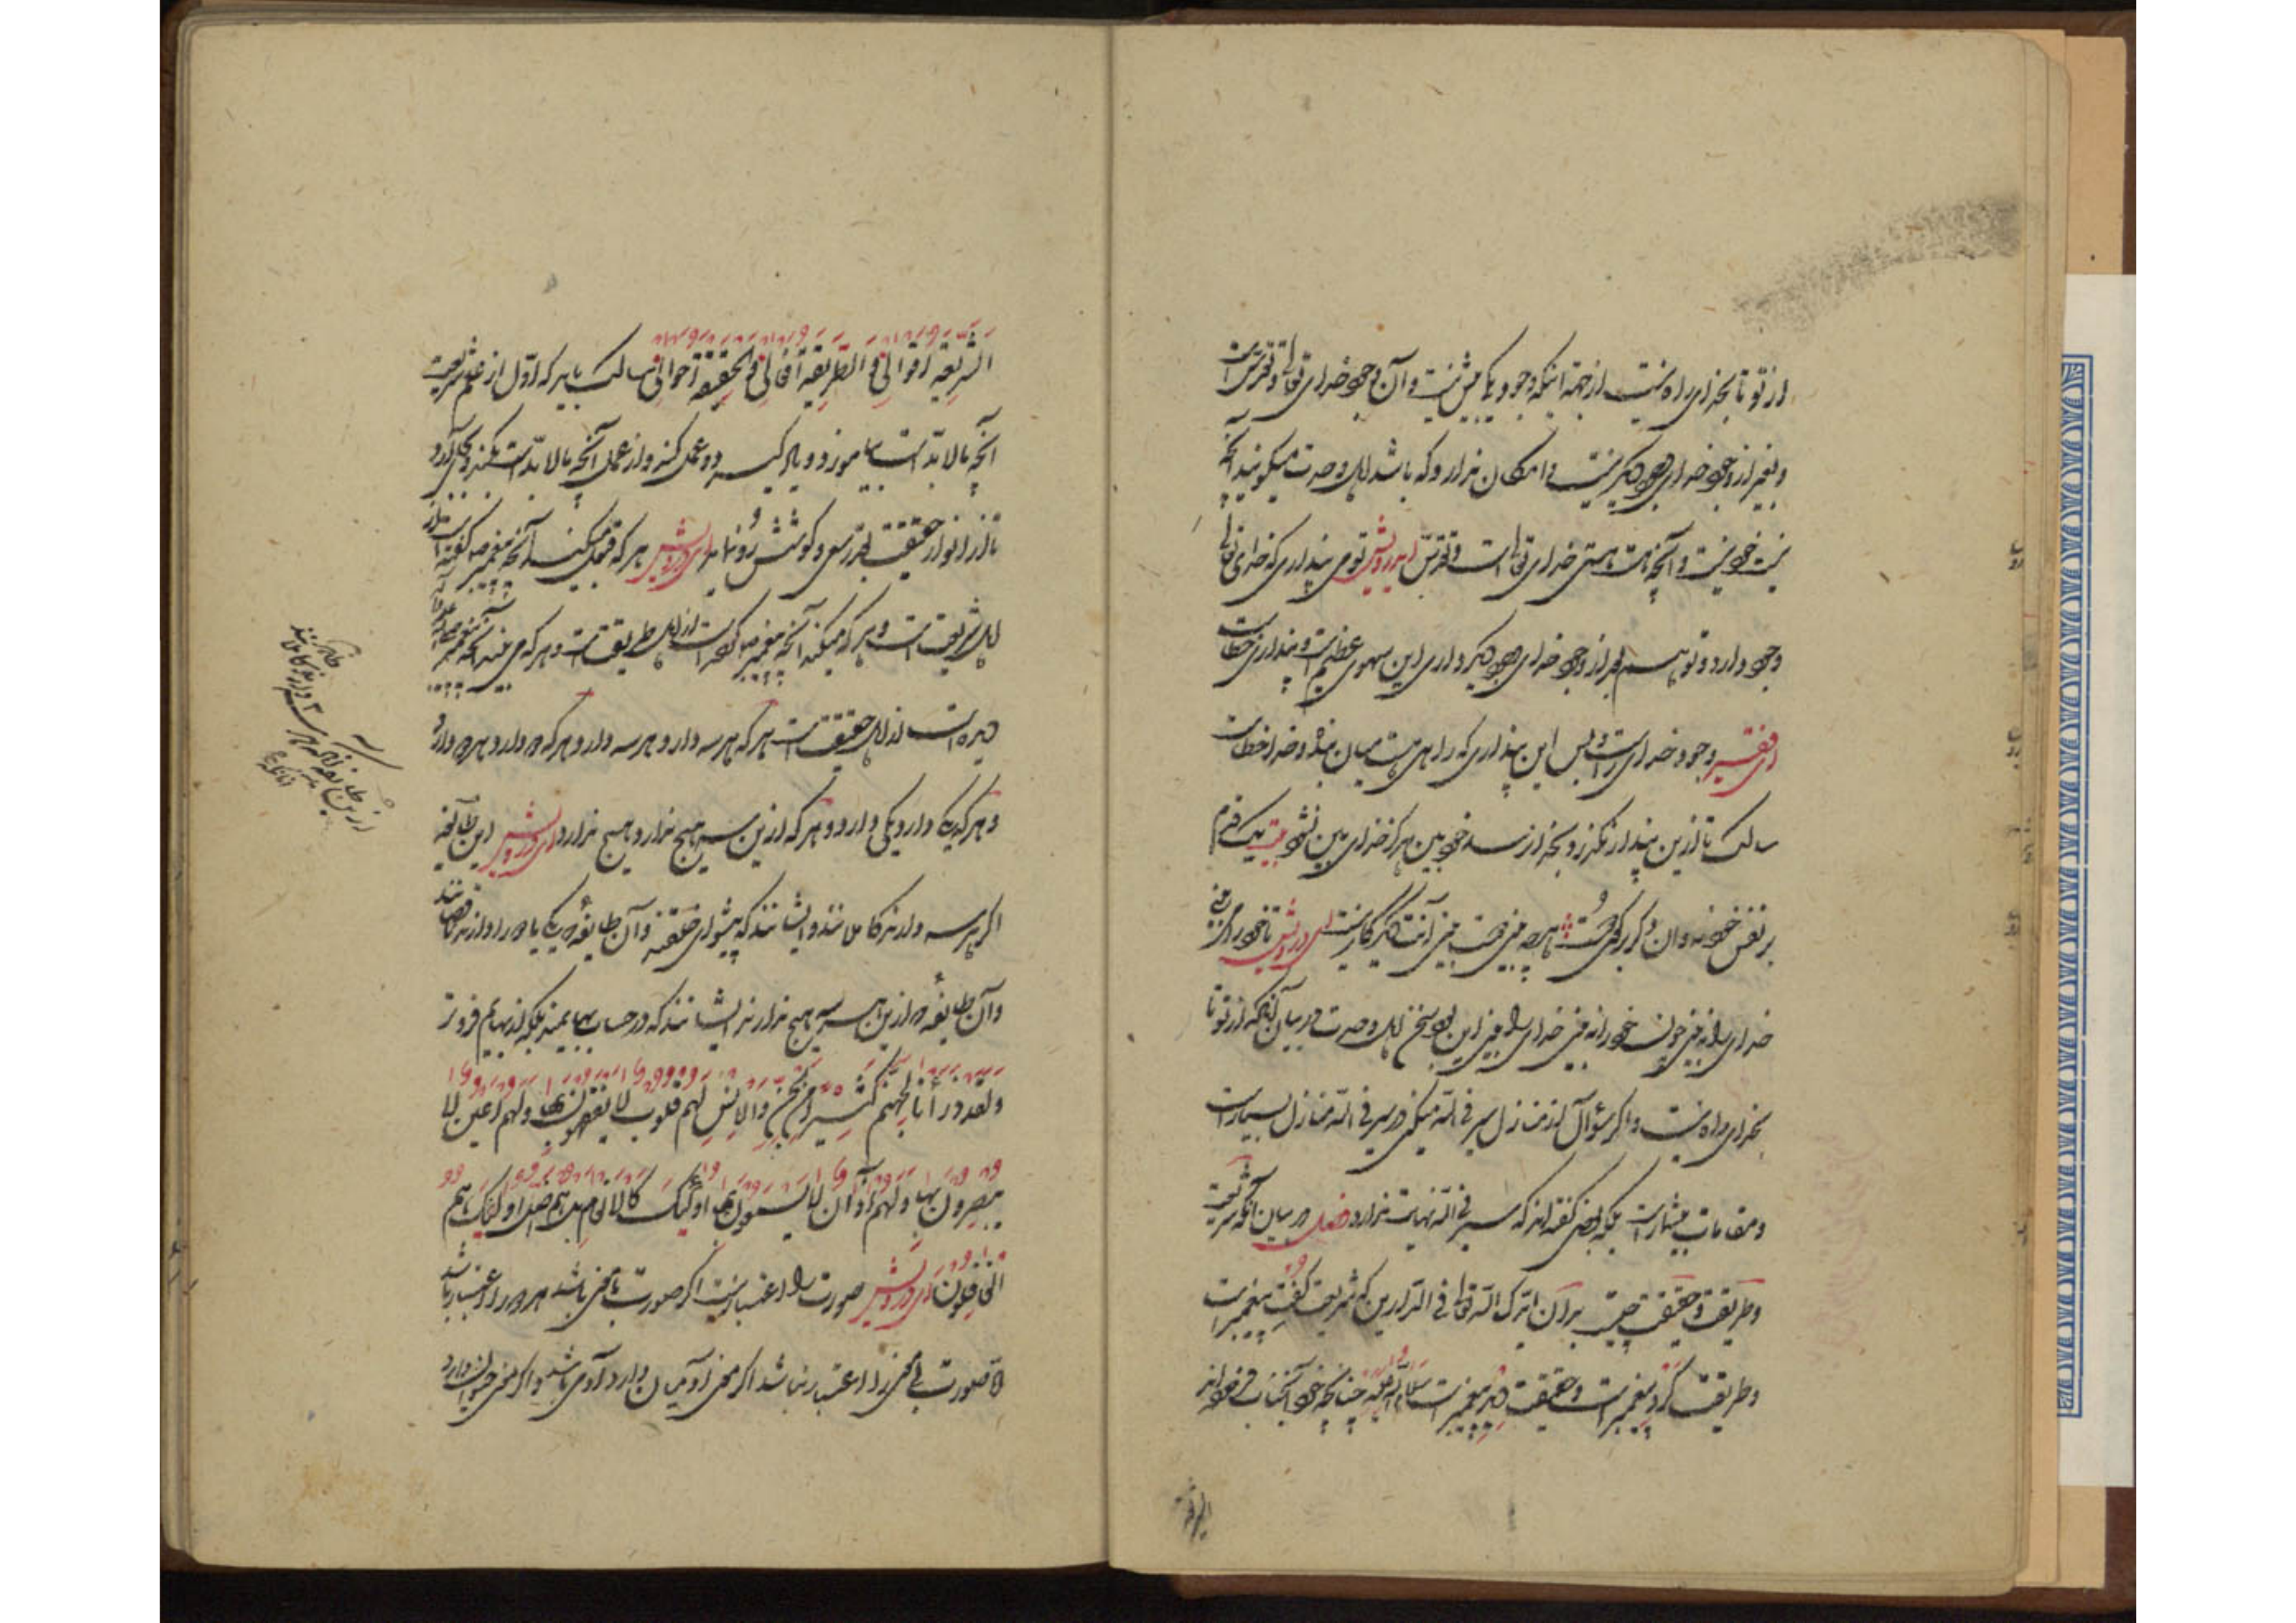 از تو تا بخدای راه نیست از جهة اینکه وجود یکی بیش نیست و آن وجود خدای تعالی و تقدس است
و بغیر از وجود خدای وجود دیگر نیست و امکان ندارد که باشد اهل وحدت میگویند آنچه
نیست خود نیست و آنچه هست هستی خدای تعالی است و تقدس ای درویش تو می پنداری که خدای تعالی
وجود دارد و تو هم بغیر از وجود خدای وجود دیگر داری این سهوی عظیم است و پنداری خطاست
ای فقیر وجود خدای راست و بس این پنداری که راهی هست میان بنده و خدا خطاست
سالک تا ازین پندار نگذرد بخدا نرسد خودبین هرگز خدای بین نشود بیت یک قدم
بر نفس خود نه وان دگر بر کوی دوست هرچه بینی دوست بین با این و آنت کار نیست ای درویش تا خود را می بینی
خدای را نه بینی چون خود را نه بینی خدای را بینی این بود سخن اهل وحدت در بیان آنکه از تو تا
بخدای راه نیست و اگر سؤال از منازل سیر فی الله میکنی در سیر فی الله منازل بسیار است
و مقامات بیشمار است بلکه بعضی گفته اند که سیر فی الله نهایت ندارد فصل در بیان آنکه شریعت
و طریقت و حقیقت چیست بدان اعزک الله تعالی فی الدارین که شریعت گفت پیغمبر است
و طریقت کرد پیغمبر است و حقیقت دید پیغمبر است سلام الله علیه چنانچه خود آنجناب فرموده اند
الشریعة
الشریعة اقوالی و الطریقة افعالی و الحقیقة احوالی سالک باید که اول از علم شریعت
آنچه مالا بد است بیاموزد و یاد گیرد و عمل کند و از عمل آنچه مالا بد است بکند و بجای آورد
تا از انوار حقیقت بقدر سعی و کوشش رو نماید ای درویش هر که قبول میکند آنچه پیغمبر گفته است از
اهل شریعت است و هر که میکند آنچه پیغمبر کرده است از اهل طریقت است و هر که می بیند آنچه پیغمبر
دیده است از اهل حقیقت است هر که هر سه دارد هر سه دارد و هر که دو دارد هر دو دارد
و هر که یکی دارد یکی دارد و هر که ازین سه هیچ ندارد هیچ ندارد ای درویش این طایفه
اگر هر سه دارند کاملانند و ایشانند که پیشوای خلقند و آن طایفه که یکی یا دو را دارند ناقصانند
و آن طایفه که ازین هر سه هیچ ندارند ایشانند که در حساب بهایمند بلکه از بهایم فروتر
و لقد ذرأنا لجهنم کثیرا من الجن و الانس لهم قلوب لا یفقهون بها و لهم اعین لا
یبصرون بها و لهم آذان لا یسمعون بها اولئک کالانعام بل هم اضل اولئک هم
الغافلون ای درویش صورت را اعتبار نیست اگر صورت با معنی باشد هر دو را اعتبار باشد
و صورت بی معنی را اعتبار نباشد اگر معنی آدمیان دارد آدمی باشد و اگر معنی حیوان دارد